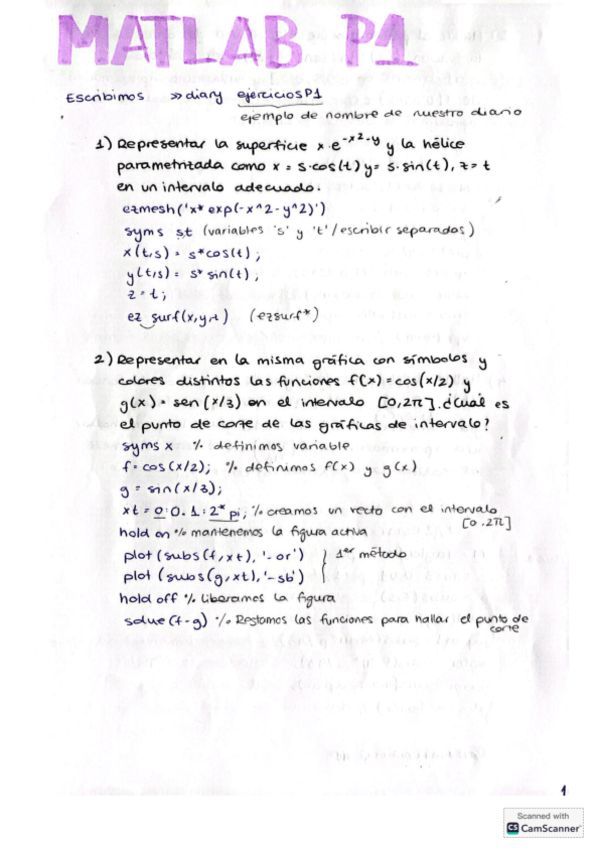 MATLAB P1
Escribimos >> diary ejerciciosP1
ejemplo de nombre de nuestro diario
1) Representar la superficie x·e^-x²-y y la hélice
parametrizada como x = s·cos(t) y = s·sin(t), z = t
en un intervalo adecuado.
ezmesh('x*exp(-x^2-y^2)')
syms s t (variables 's' y 't'/escribir separados)
x(t,s) = s*cos(t);
y(t,s) = s*sin(t);
z = t;
ez surf(x,y,t) (ezsurf*)
2) Representar en la misma gráfica con símbolos y
colores distintos las funciones f(x) = cos(x/2) y
g(x) = sen(x/3) en el intervalo [0,2π]. ¿Cuál es
el punto de corte de las gráficas de intervalo?
syms x % definimos variable
f = cos(x/2); % definimos f(x) y g(x)
g = sin(x/3);
xt = 0:0.1:2*pi; % creamos un vecto con el intervalo
[0,2π]
hold on % mantenemos la figura activa
plot(subs(f,xt),'-or') } 1er método
plot(subs(g,xt),'-sb')
hold off % liberamos la figura
solve(f-g) % Restamos las funciones para hallar el punto de
corte
1
Scanned with
CS CamScanner